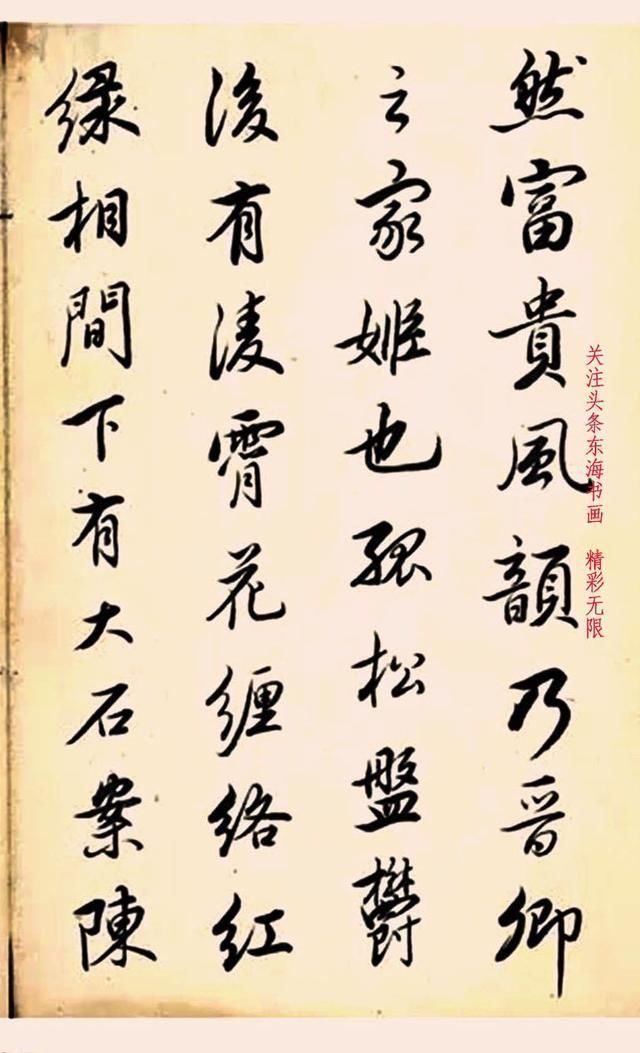 然富貴風韻乃晉卿
之家姬也孤松盤鬱
後有凌霄花纏絡紅
綠相間下有大石案陳
关注头条东海书画 精彩无限